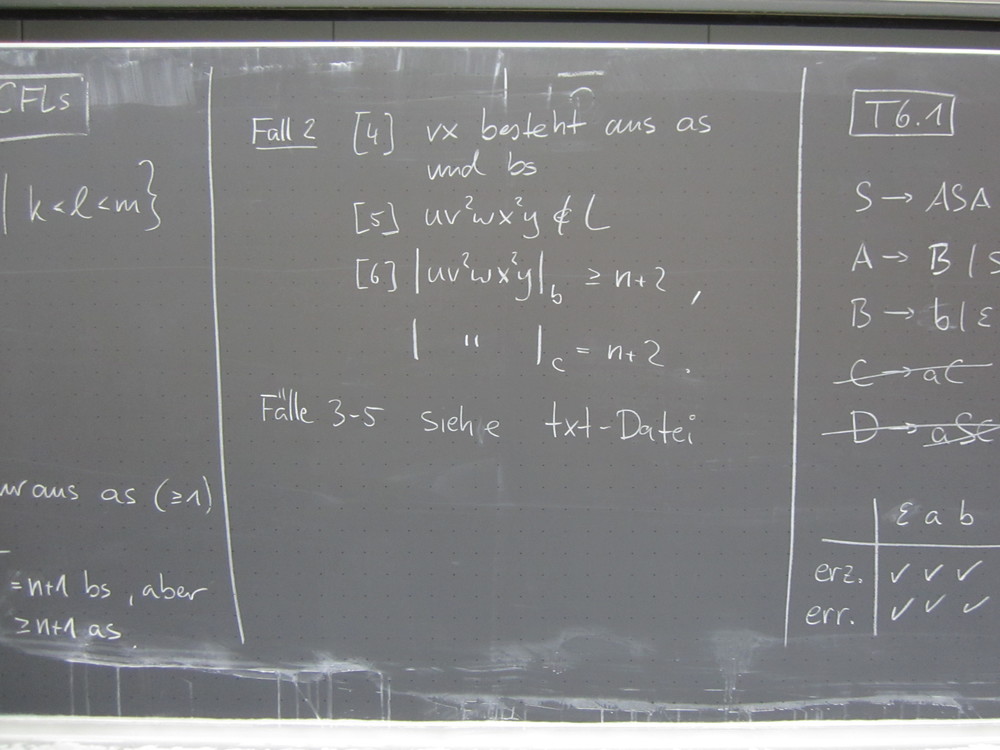 CFLs
| k<l<m}
aus as (≥1)
=n+1 bs, aber
≥n+1 as
Fall 2 [4] vx besteht aus as
und bs
[5] uv²wx²y ∉ L
[6] |uv²wx²y|_b ≥ n+2,
| " |_c = n+2.
Fälle 3-5 siehe txt-Datei
T6.1
S → ASA
A → B | S
B → b | ε
C → aC
D → aSC
ε a b
erz. ✓ ✓ ✓
err. ✓ ✓ ✓